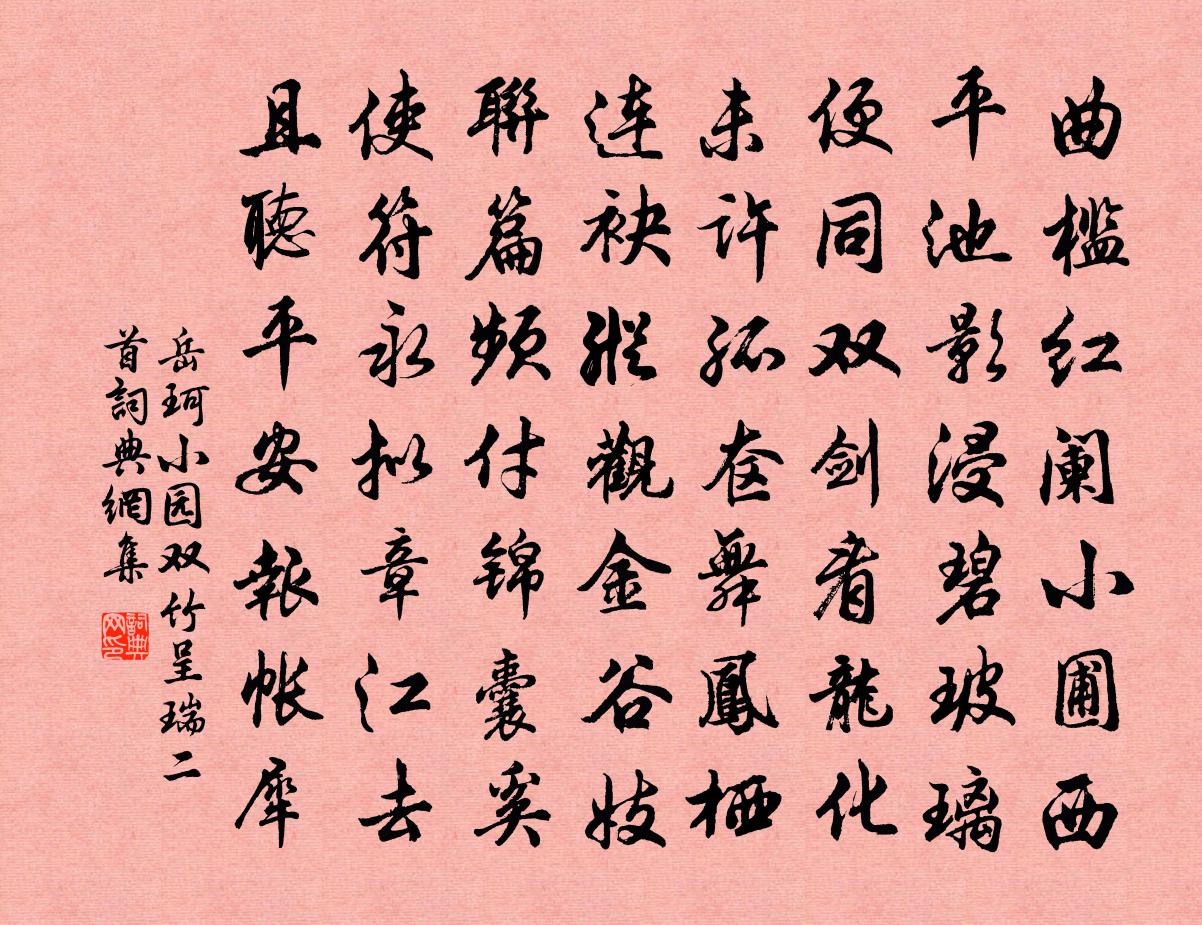 曲槛红阑小圃西
平池影浸碧玻璃
便同双剑看龍化
未许孤奁舞鳳栖
连袂縱觀金谷妓
聯篇频付锦囊奚
使符永拟章江去
且聽平安報帐犀
岳珂小园双竹呈瑞二
首詞典網集
詞典网印